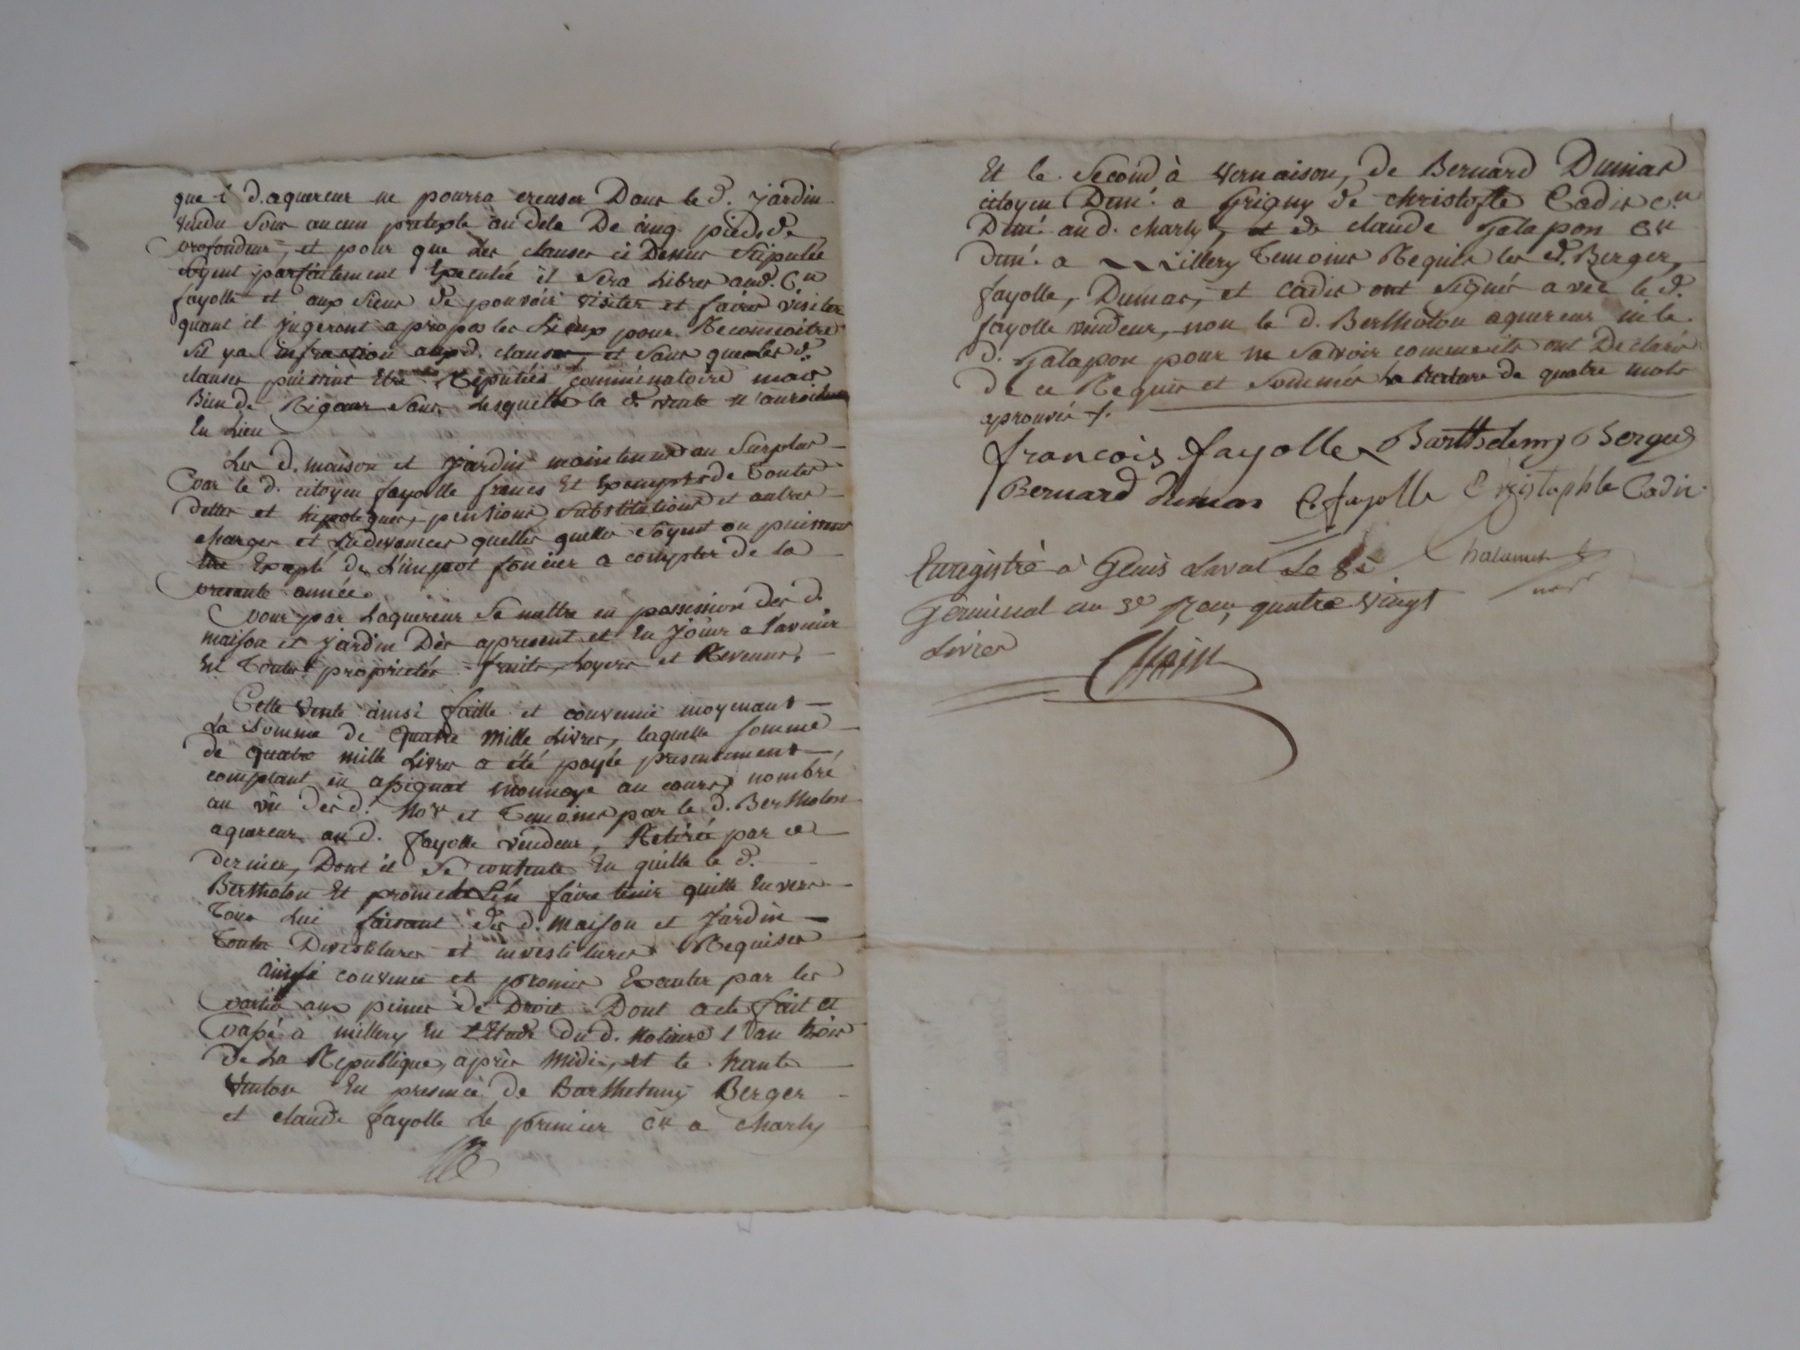 que d. aquereur ne pourra creuser Dans le d. jardin
vendu sous aucun pretexte au dela De cinq pieds de
profondeur, et pour que Les clauses ci Dessus stipulée
soyent parfaitement Executée il sera Libres aud. Cn
fayolle et aux siens de pouvoir visiter et faire visiter
quant il jugeront apropos les lieux pour Reconnoitre
sil ya infraction auxd. clauses, et sans que les d.
clauses puissent être Reputées comminatoire mais
Bien de Rigeur sans Lesquelle la d. vente n'auroit
En Lieu
Les d. maison et jardin maintenus au surplus
par le d. citoyen fayolle francs Et Exempts de Toutes
dettes et hipoteques, pensions, substitutions et autres
charges et Redevances quelles quelles soyent ou puissent
être Excepté de L'impot foncier a compter de la
presente année.
pour par Laquereur se mettre en possession des d.
maison et jardin Dès apresent et En jouir a l'avenir
En Toutes proprietés fruits, Loyers et Revenus.
Cette Vente ainsi faitte et convenue moyenant
La Somme de Quatre Mille Livres, laquelle somme
de quatre mille Livres a été payée presentement
comptant en assignat monnoye au cours, nombré
au vû des d. Nore et Temoins par le d. Bertholon
aquereur au d. fayolle vendeur, Retirée par ce
dernier, Dont il se contente En quitte le d.
Bertholon Et promet L'en faire tenir quitte Envers
Tous Lui faisant des d. Maison et Jardin
Toutes Devestitures et investitures Requises
ainsi convenu et promis Executer par les
parties aux peines de Droit. Dont acte fait et
passé à millery En L'Etude du d. Notaire l'an trois
de La Republique, après Midi, et le trente
Ventose En presence de Barthelemy Berger
et claude fayolle le premier Cn a charly
Et le second à Vernaison, de Bernard Dumas
citoyen Dmt. a Grigny de christofle Cadis Cn
Dmt. aud. charly, et de claude Galapon Cn
dmt. a Millery Temoins Requis les d. Berger,
fayolle, Dumas, et Cadis ont signés avec le d.
fayolle vendeur, non le d. Bertholon aquereur ni le
d. Galapon pour ne savoir comme ils ont Declaré
de ce Requis et sommés la Rature de quatre mots
aprouvée /.
francois fayolle Barthelemy Berger
Bernard dumas C fayolle Cristophle Cadis
Enregistré à Genis Laval Le 8e Chalamet
Germinal an 3e Recu quatre Vingt
Livres